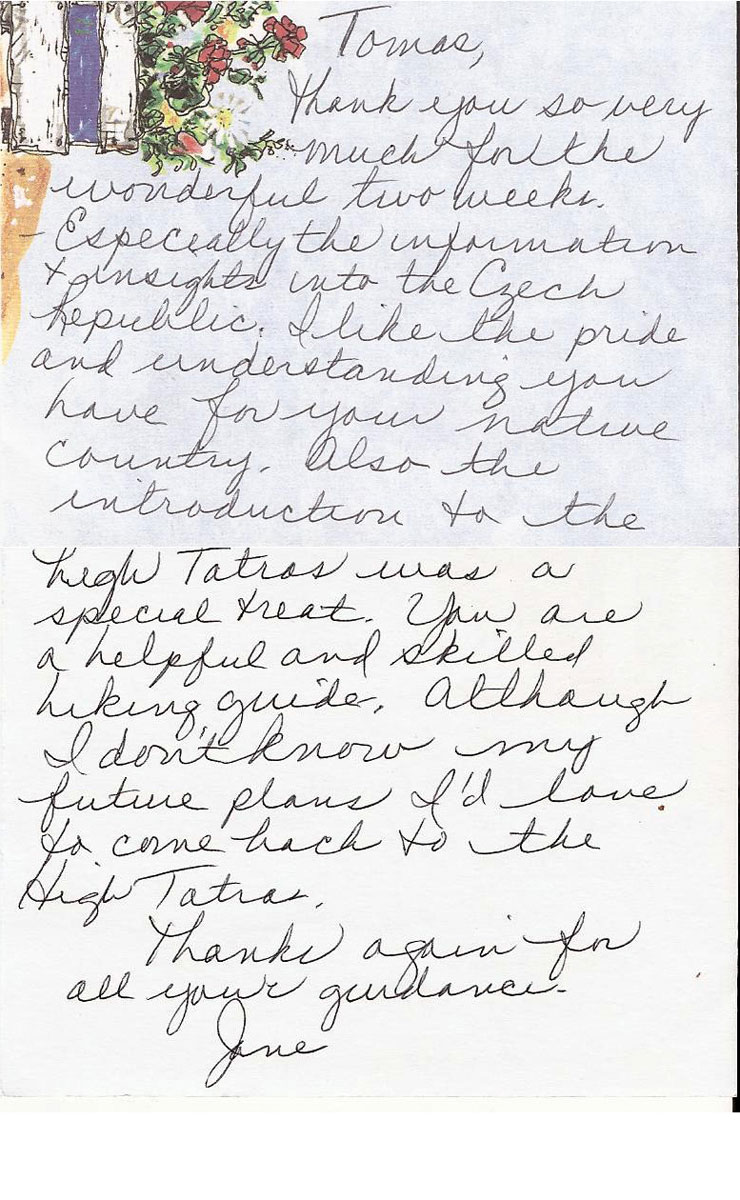 Tomas,
Thank you so very
much for the
wonderful two weeks.
- Especially the information
+ insights into the Czech
Republic. I like the pride
and understanding you
have for your native
country. Also the
introduction to the
high Tatras was a
special treat. You are
a helpful and skilled
hiking guide. Although
I don't know my
future plans I'd love
to come back to the
High Tatras.
Thanks again for
all your guidance -
Jane